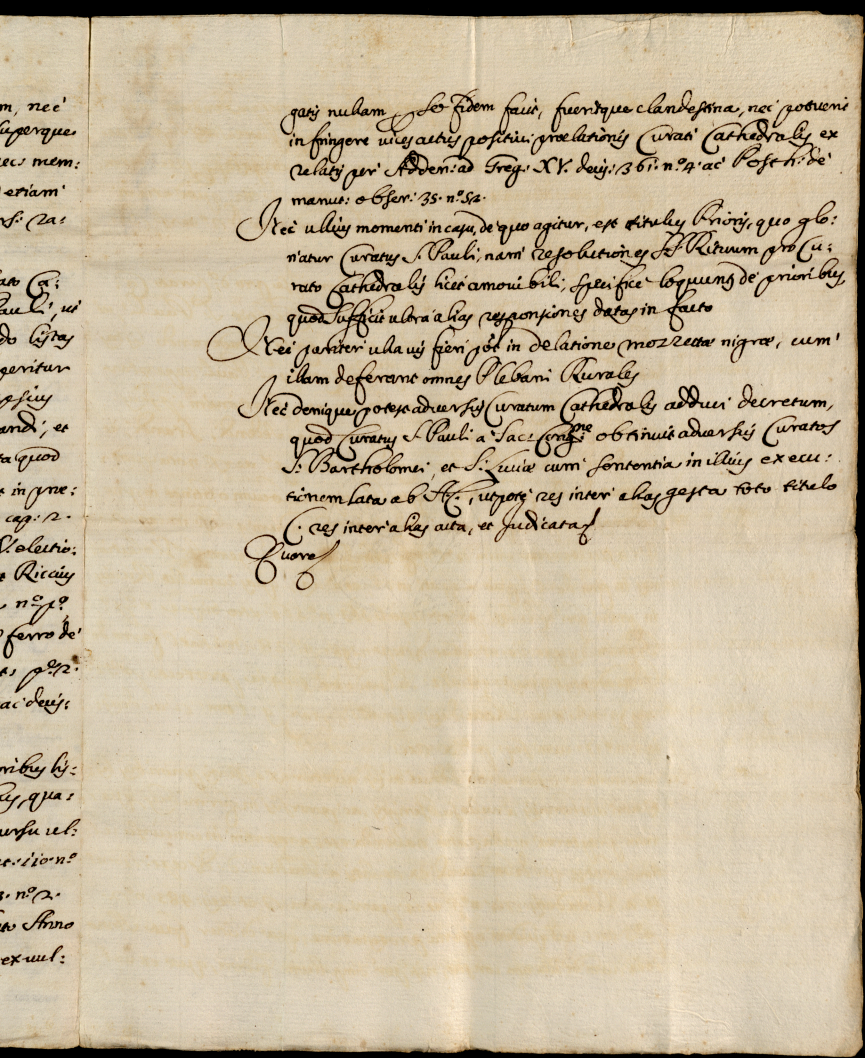 m, nec
superque
nec mem:
etiam
ato Ca:
Pauli, ut
do listas
geritur
psius
andi, et
ta quod
t in pne:
cap: 2.
electio:
t Riccius
nº pº
ferro de
pº 2.
ac decis:
oribus lis:
us, qua:
ursu rel:
nº
3. nº 2.
to Anno
ex uul:
gatis nullam per se fidem facit, fueritque clandestina, nec potuerit
infringere vices actus positivi prælationis Curati Cathedralis ex
relatis per Adden: ad Greg: XV. decis: 361. nº 4. ac Posth: de
manut: obser: 35. nº 52.
Nec ullius momenti in casu, de quo agitur, est titulus Prioris, quo glo:
riatur Curatus S. Pauli, nam resolutiones S. Rituum pro Cu:
rato Cathedralis licet amovibili, specifice loquuntur de prioribus,
quod sufficit ultra alias responsiones datas in facto
Nec pariter ulla vis fieri pot in delatione mozzettæ nigræ, cum
illam deferant omnes Plebani Rurales
Nec denique potest adversus Curatum Cathedralis adduci decretum,
quod Curatus S. Pauli a Sac: Congne obtinuit adversus Curatos
S. Bartholomei, et S. Luciæ cum sententia in illius execu:
tionem lata ab A. C., utpote res inter alias gesta toto titulo
C. res inter alias acta, et judicata
Quare